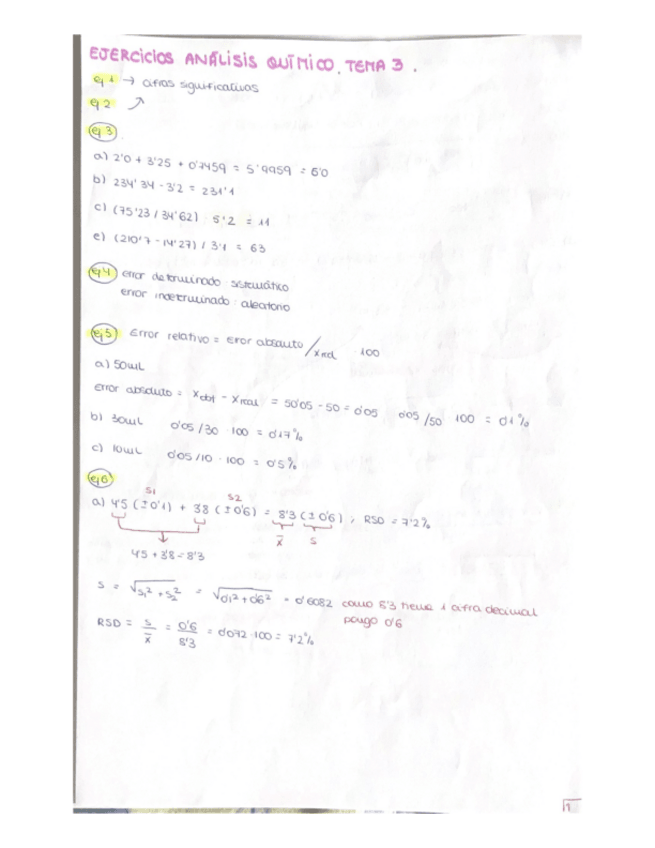 EJERCICIOS ANÁLISIS QUÍMICO. TEMA 3.
ej 1 → cifras significativas
ej 2 ↗
ej 3
a) 2'0 + 3'25 + 0'7459 = 5'9959 = 6'0
b) 234'34 - 3'2 = 231'1
c) (75'23 / 34'62) · 5'2 = 11
e) (210'7 - 14'27) / 3'1 = 63
ej 4 error determinado: sistemático
error indeterminado: aleatorio
ej 5 Error relativo = Error absoluto / Xreal · 100
a) 50mL
error absoluto = Xobt - Xreal = 50'05 - 50 = 0'05 0'05 / 50 · 100 = 0'1%
b) 30mL 0'05 / 30 · 100 = 0'17%
c) 10mL 0'05 / 10 · 100 = 0'5%
ej 6
S1 S2
a) 4'5 (±0'1) + 3'8 (±0'6) = 8'3 (±0'6); RSD = 7'2%
x̄ S
4'5 + 3'8 = 8'3
S = √S1² + S2² = √0'1² + 0'6² = 0'6082 como 8'3 tiene 1 cifra decimal
pongo 0'6
RSD = S / x̄ = 0'6 / 8'3 = 0'072 · 100 = 7'2%
1